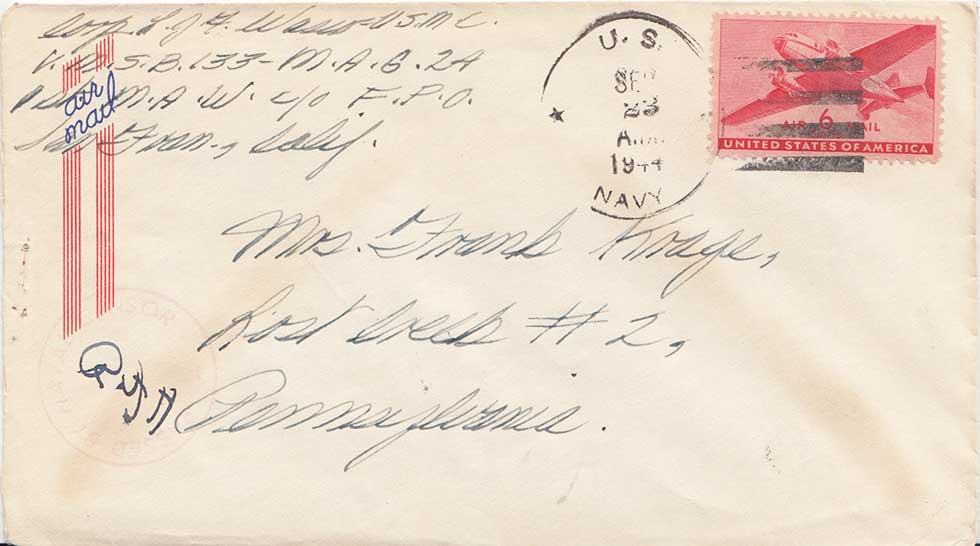 Corp. L. J. F. U.S.M.C.
V. M. S. B. 133 - M. A. G. 24
M. A. W. c/o F. P. O.
San Fran., Calif.
air
mail
U. S.
SEP
23
A.M.
1944
NAVY
AIR 6 MAIL
UNITED STATES OF AMERICA
Mrs. Frank Krage,
Lost Creek # 2,
Pennsylvania.